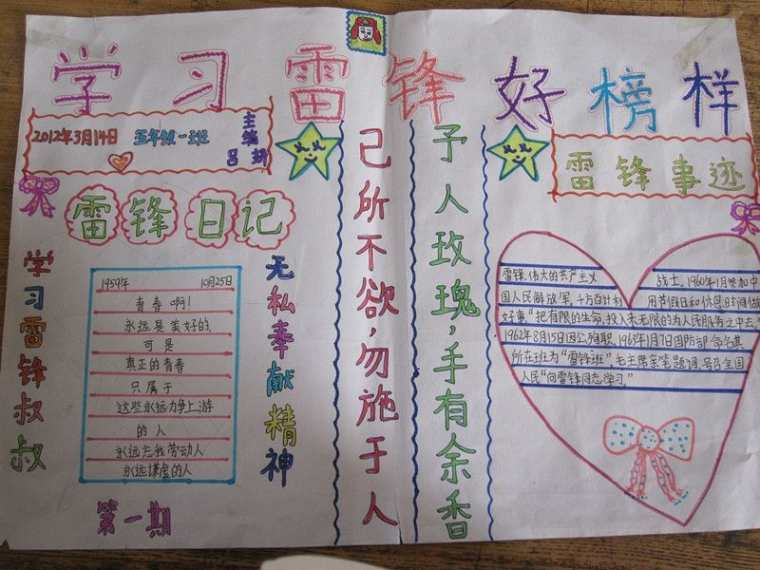 学习雷锋好榜样
2012年3月14日 五年级一班
主编
吕
雷锋日记
学习雷锋叔叔
1959年 10月25日
青春啊!
永远是美好的,
可是
真正的青春
只属于
这些永远力争上游
的人
永远忘我劳动人
永远谦虚的人
第一期
无私奉献精神
己所不欲,勿施于人
予人玫瑰,手有余香
雷锋事迹
雷锋,伟大的共产主义 战士,1960年1月参加中
国人民解放军,千方百计利 用节假日和休息时间做
好事“把有限的生命,投入未无限的为人民服务之中去.”
1962年8月15日因公殉职 1963年1月7日国防部命名其
所在班为“雷锋班”毛主席亲笔题词,号召全国
人民“向雷锋同志学习.”